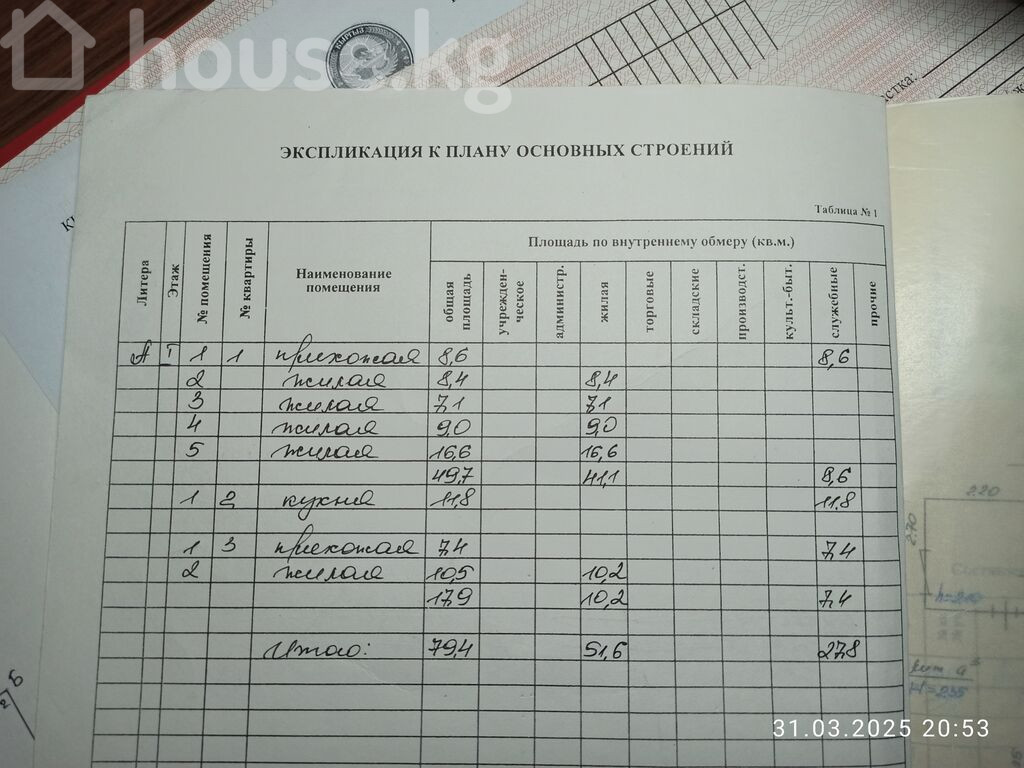 house.kg
КЫРГЫЗ
стка:
ЭКСПЛИКАЦИЯ К ПЛАНУ ОСНОВНЫХ СТРОЕНИЙ
Таблица № 1
Литера
Этаж
№ помещения
№ квартиры
Наименование помещения
Площадь по внутреннему обмеру (кв.м.)
общая площадь
учрежден-ческое
администр.
жилая
торговые
складские
производст.
культ.-быт.
служебные
прочие
А I 1 1 прихожая 8,6 8,6
2 жилая 8,4 8,4
3 жилая 7,1 7,1
4 жилая 9,0 9,0
5 жилая 16,6 16,6
49,7 41,1 8,6
1 2 кухня 11,8 11,8
1 3 прихожая 7,4 7,4
2 жилая 10,5 10,2
17,9 10,2 7,4
Итого: 79,4 51,6 27,8
2.20
2.70
H=235
31.03.2025 20:53